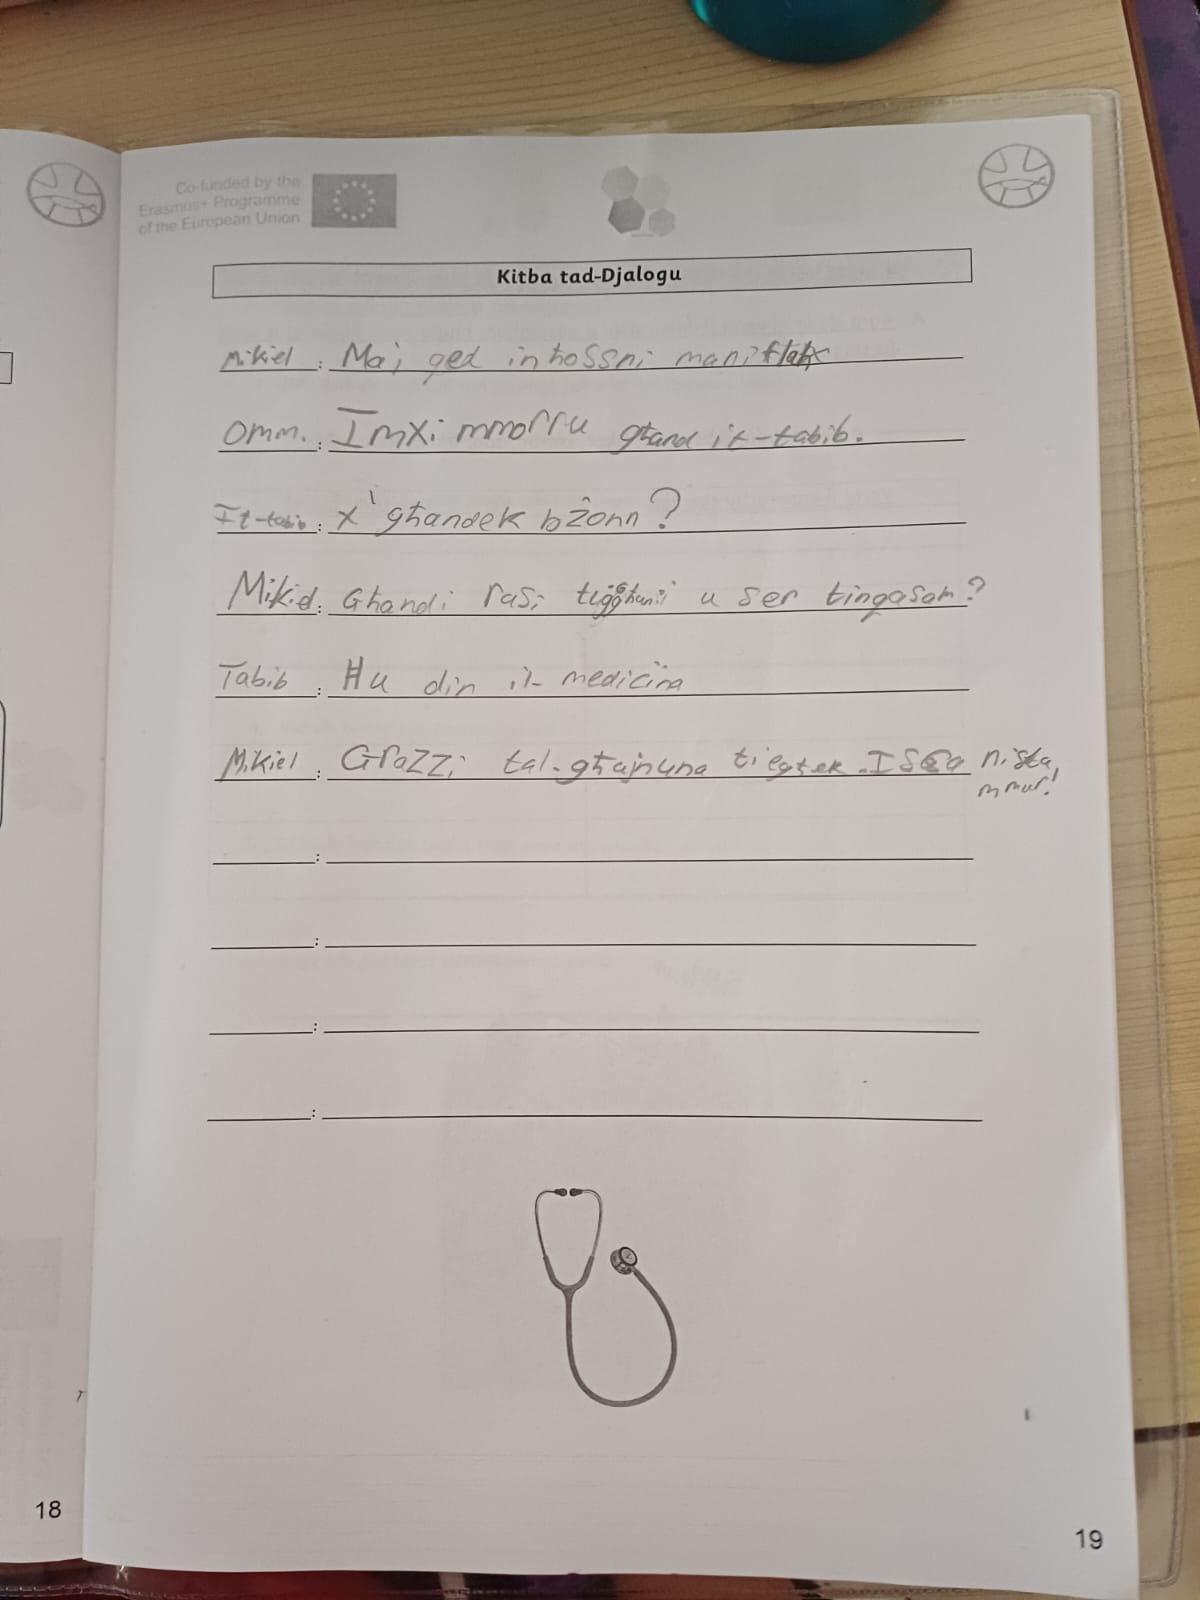 Co-funded by the
Erasmus+ Programme
of the European Union
Kitba tad-Djalogu
Mikiel : Ma; qed inħossni maniflaħx
Omm. : Imxi mmorru għand it-tabib.
It-tabib : X'għandek bżonn?
Mikiel : Għandi rasi u ser tinqasam?
Tabib : Ħu din il-mediċina
Mikiel : Grazzi tal-għajnuna tiegħek. Issa nista
mmur!
:
:
:
:
18
19